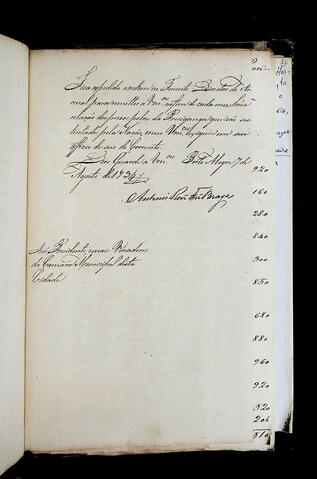 Fica expedida a ordem ao Tenente Director do Ar-
senal para remetter a Vm.ces no fim de cada mez huma
relação dos prezos pobres da
tentado pela Nação, como Vm.ces em seu
officio de seis do Corrente.
Deos Guarde a Vm.ces Porto Alegre 7 de
Agosto de 1834
Antonio Roiz Fer.s Braga
Snr.s Prezidente, e mais Vereadores
da Camara Municipal desta
Cidade
920
160
280
840
300
850
680
880
960
920
320
206
510